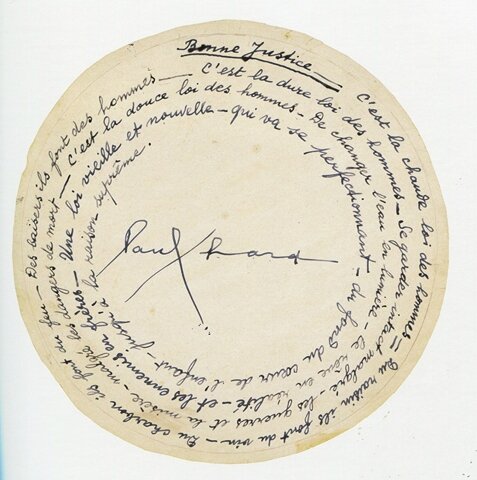 Bonne Justice —
C'est la chaude loi des hommes — Du raisin ils font du vin — Du charbon ils font du feu — Des baisers ils font des hommes —
C'est la dure loi des hommes — Se garder intact malgré — les guerres et la misère — malgré les dangers de mort —
C'est la douce loi des hommes — De changer l'eau en lumière — le rêve en réalité — et les ennemis en frères —
Une loi vieille et nouvelle — qui va se perfectionnant — du fond du cœur de l'enfant — jusqu'à la raison suprême.
Paul Eluard